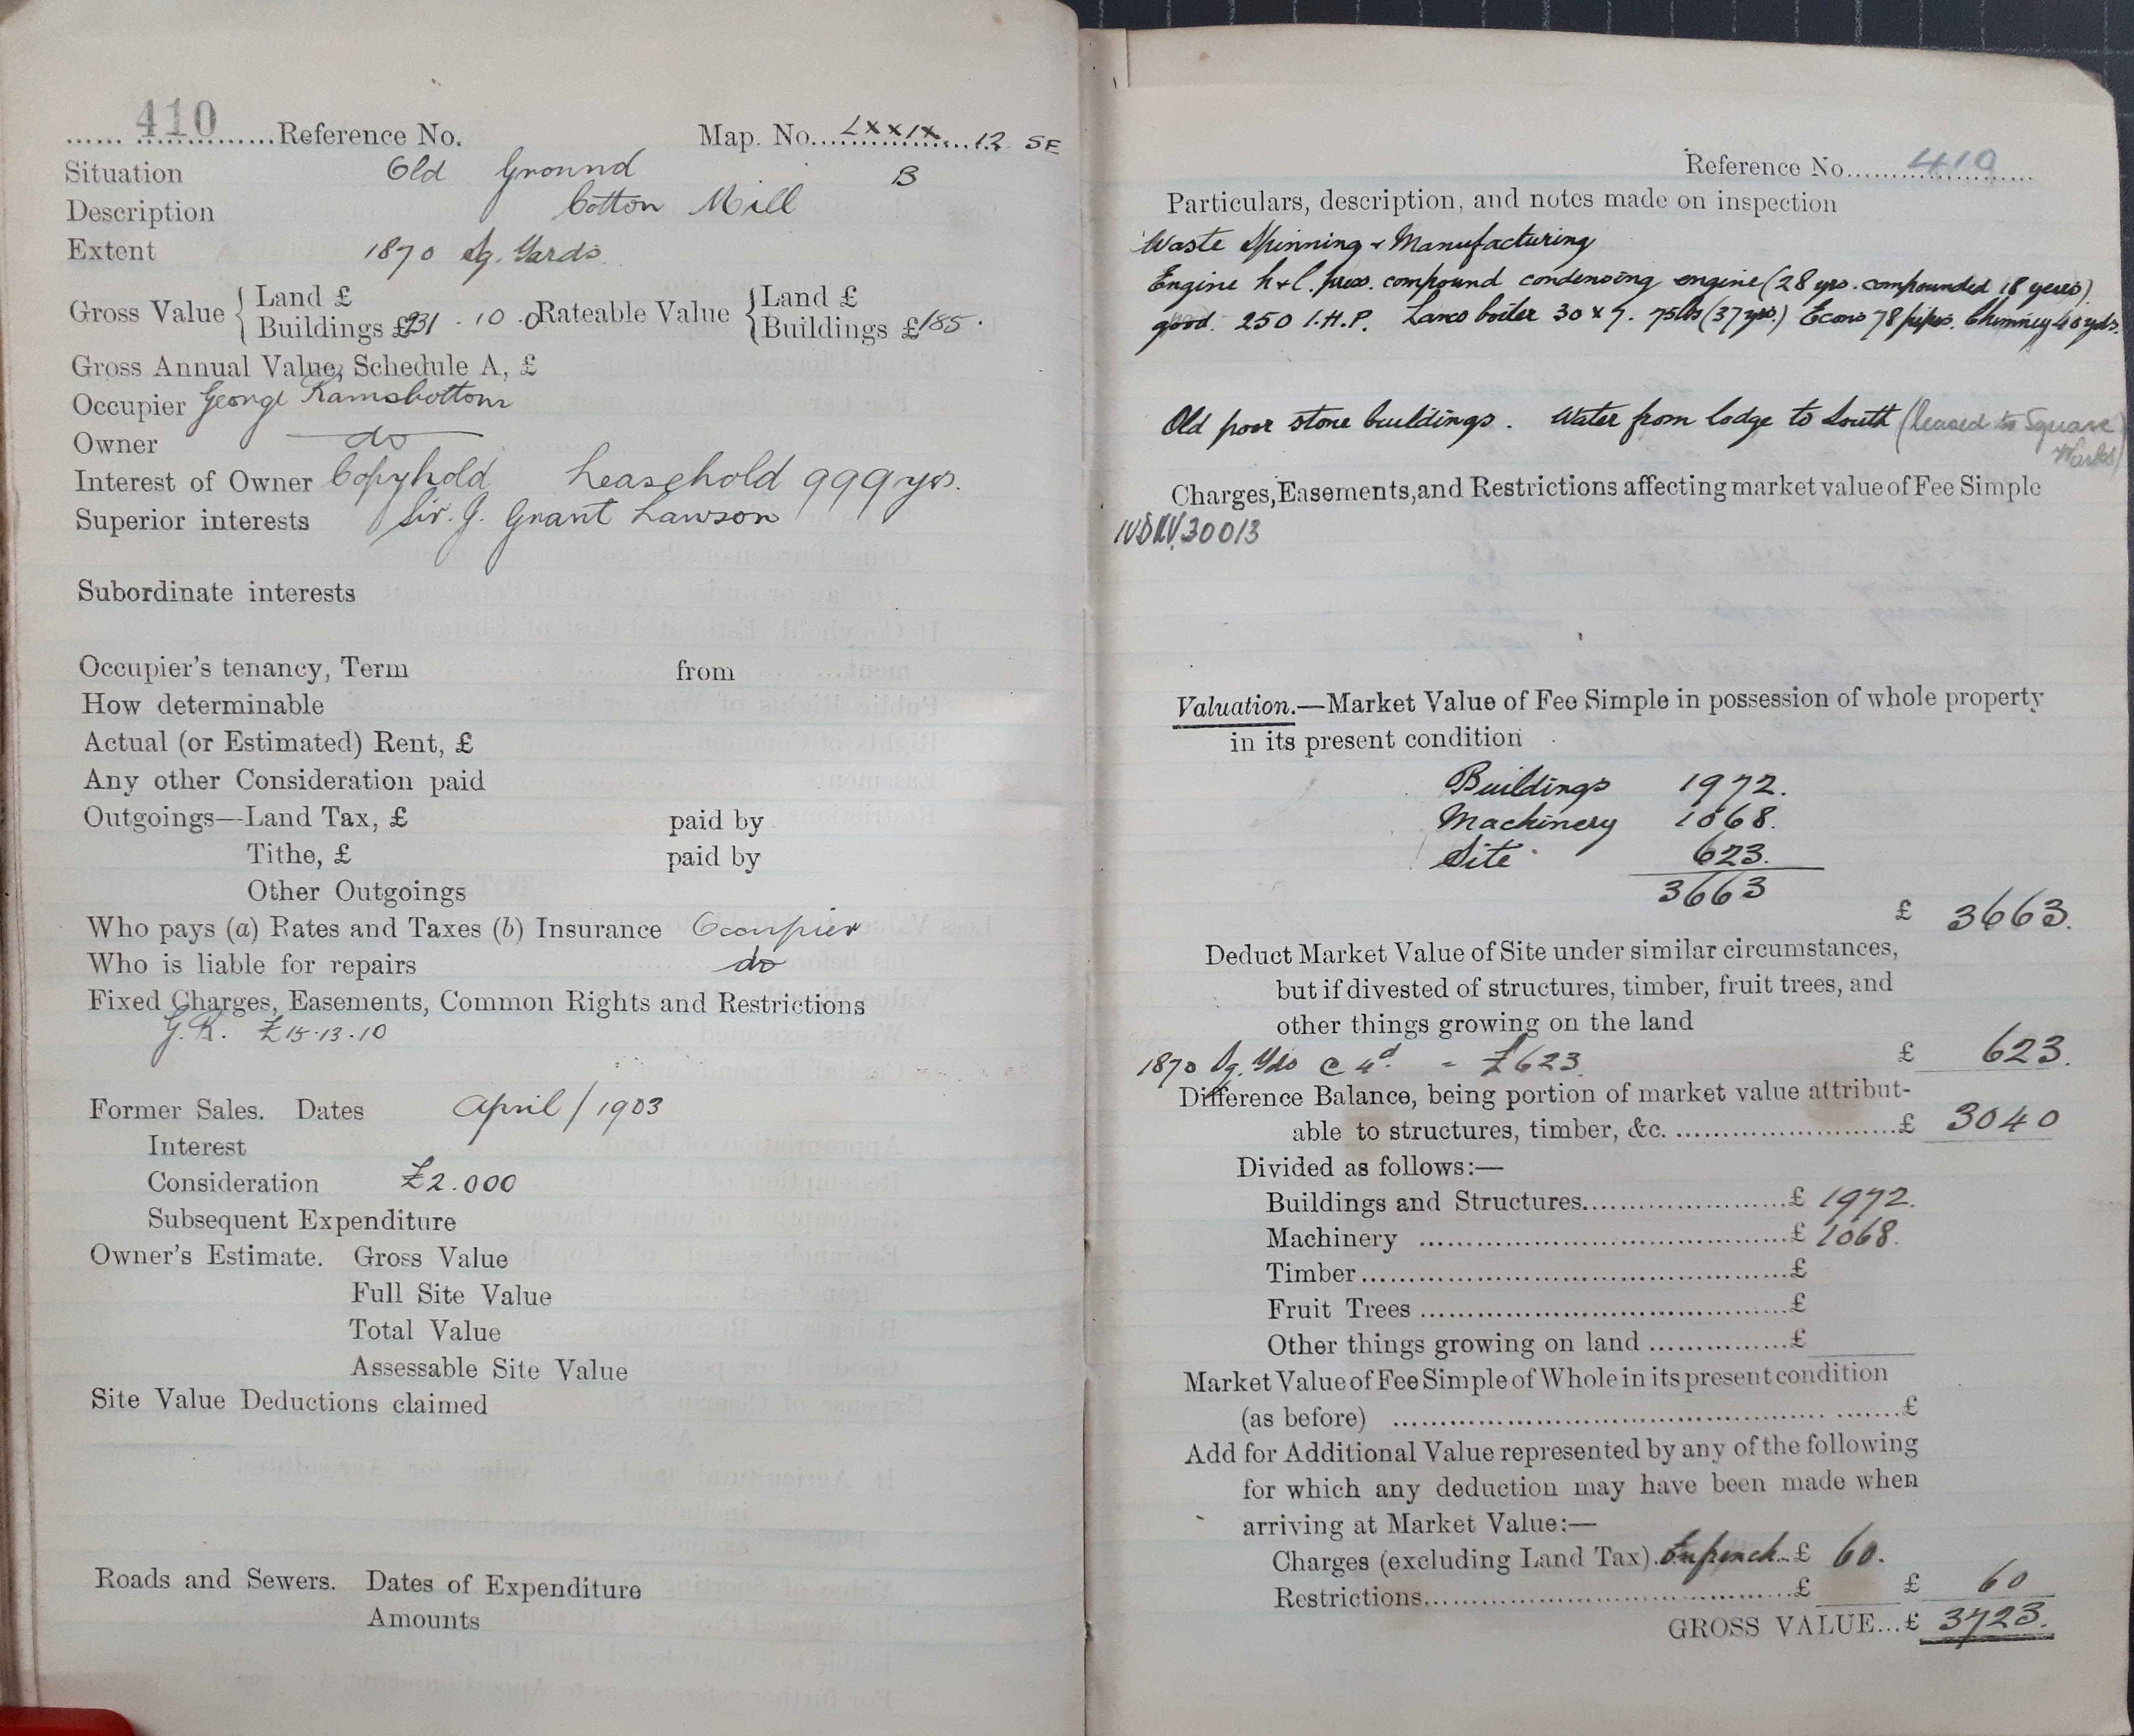 410 Reference No. Map. No. LXXIX 12 SE
Situation Old Ground B
Description Cotton Mill
Extent 1870 Sq. Yards
Gross Value { Land £ Rateable Value { Land £
Buildings £231 . 10 . 0 Buildings £185 .
Gross Annual Value, Schedule A, £
Occupier George Ramsbottom
Owner do
Interest of Owner Copyhold Leasehold 999 yrs.
Superior interests Sir. J. Grant Lawson
Subordinate interests
Occupier's tenancy, Term from
How determinable
Actual (or Estimated) Rent, £
Any other Consideration paid
Outgoings—Land Tax, £ paid by
Tithe, £ paid by
Other Outgoings
Who pays (a) Rates and Taxes (b) Insurance Occupier
Who is liable for repairs do
Fixed Charges, Easements, Common Rights and Restrictions
G.R. £15.13.10
Former Sales. Dates April / 1903
Interest
Consideration £2.000
Subsequent Expenditure
Owner's Estimate. Gross Value
Full Site Value
Total Value
Assessable Site Value
Site Value Deductions claimed
Roads and Sewers. Dates of Expenditure
Amounts
Reference No. 410
Particulars, description, and notes made on inspection
Waste Spinning & Manufacturing
Engine h & l. press. compound condensing engine (28 yrs. compounded 18 years)
good. 250 I.H.P. Lancs boiler 30 x 7. 75lbs (37 yrs.) Econs 78 pipes. Chimney 40 yds.
Old poor stone buildings. Water from lodge to South (leased to Square
Works)
Charges, Easements, and Restrictions affecting market value of Fee Simple
30013
Valuation.—Market Value of Fee Simple in possession of whole property
in its present condition
Buildings 1972.
Machinery 1068.
Site 623.
3663
£ 3663.
Deduct Market Value of Site under similar circumstances,
but if divested of structures, timber, fruit trees, and
other things growing on the land
1870 Sq. Yds @ 4d - £623. £ 623.
Difference Balance, being portion of market value attribut-
able to structures, timber, &c. £ 3040
Divided as follows:—
Buildings and Structures £ 1972.
Machinery £ 1068.
Timber £
Fruit Trees £
Other things growing on land £
Market Value of Fee Simple of Whole in its present condition
(as before) £
Add for Additional Value represented by any of the following
for which any deduction may have been made when
arriving at Market Value:—
Charges (excluding Land Tax). Enfranch. £ 60.
Restrictions £ £ 60
GROSS VALUE...£ 3723.